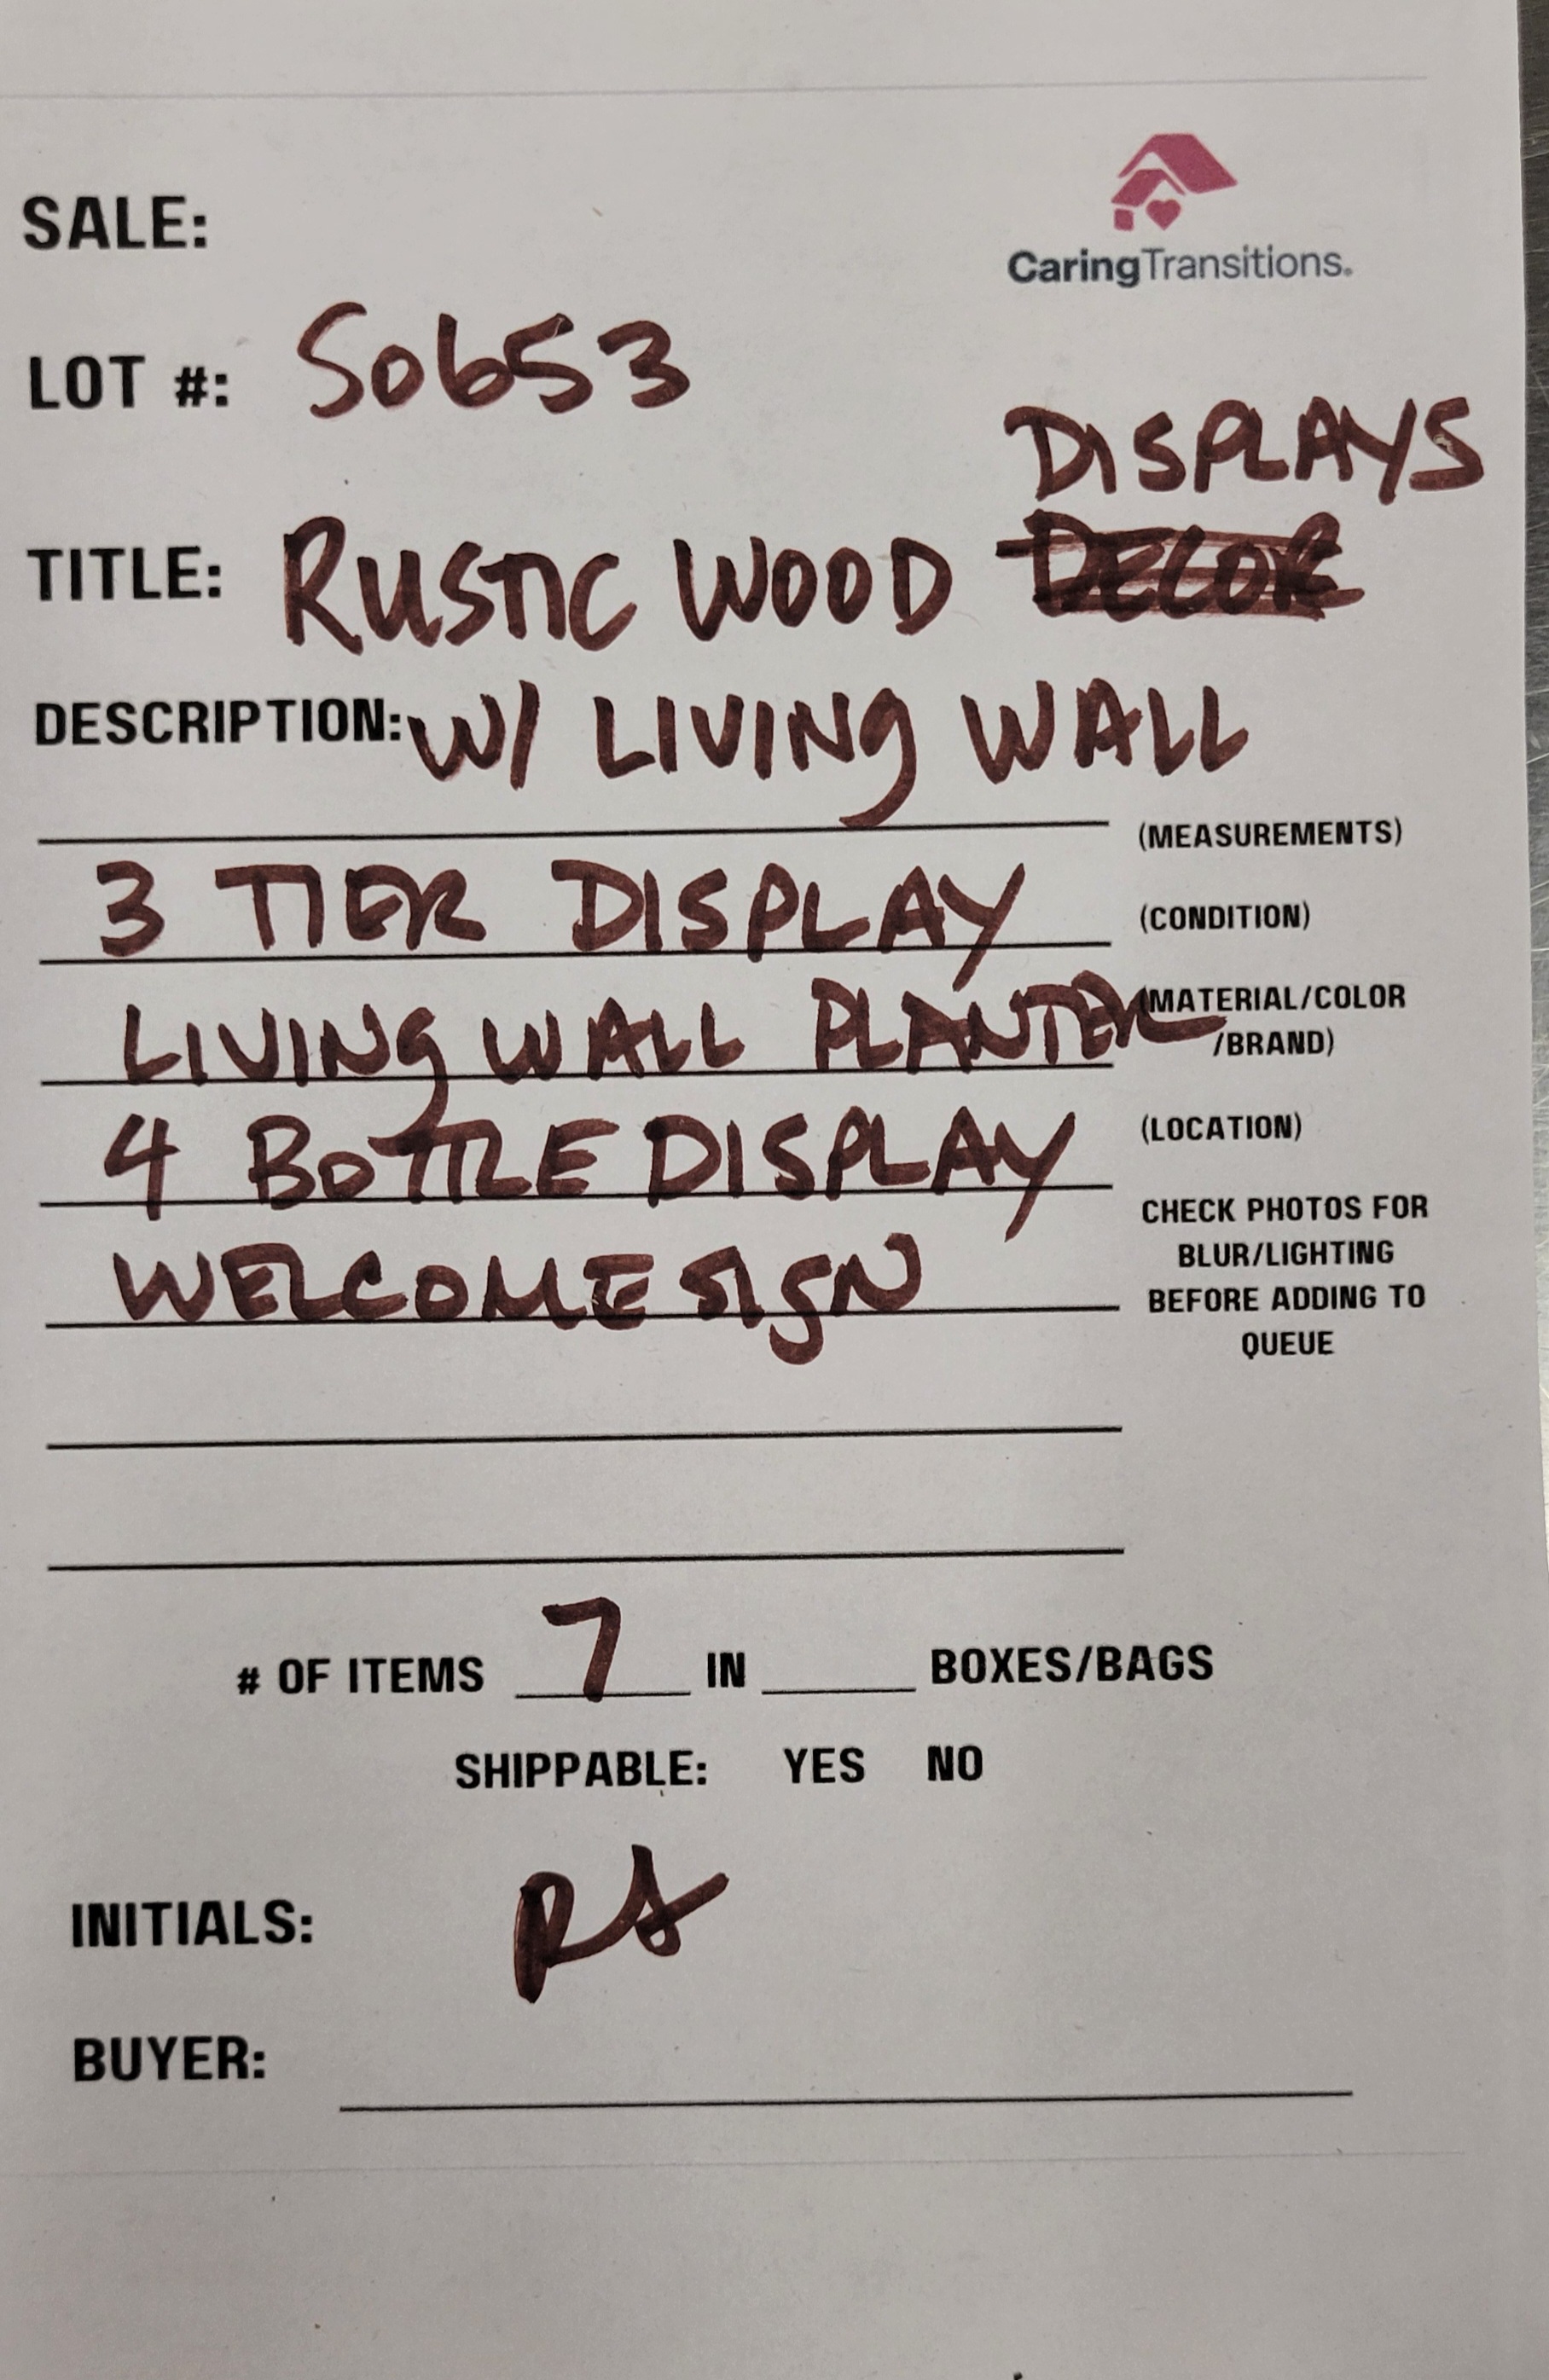 SALE:
CaringTransitions.
LOT #: S0653
DISPLAYS
TITLE: RUSTIC WOOD DECOR
DESCRIPTION: W/ LIVING WALL
(MEASUREMENTS)
3 TIER DISPLAY (CONDITION)
LIVING WALL PLANTER (MATERIAL/COLOR
/BRAND)
4 BOTTLE DISPLAY (LOCATION)
CHECK PHOTOS FOR
BLUR/LIGHTING
WELCOME SIGN BEFORE ADDING TO
QUEUE
# OF ITEMS 7 IN ____ BOXES/BAGS
SHIPPABLE: YES NO
INITIALS:
BUYER: